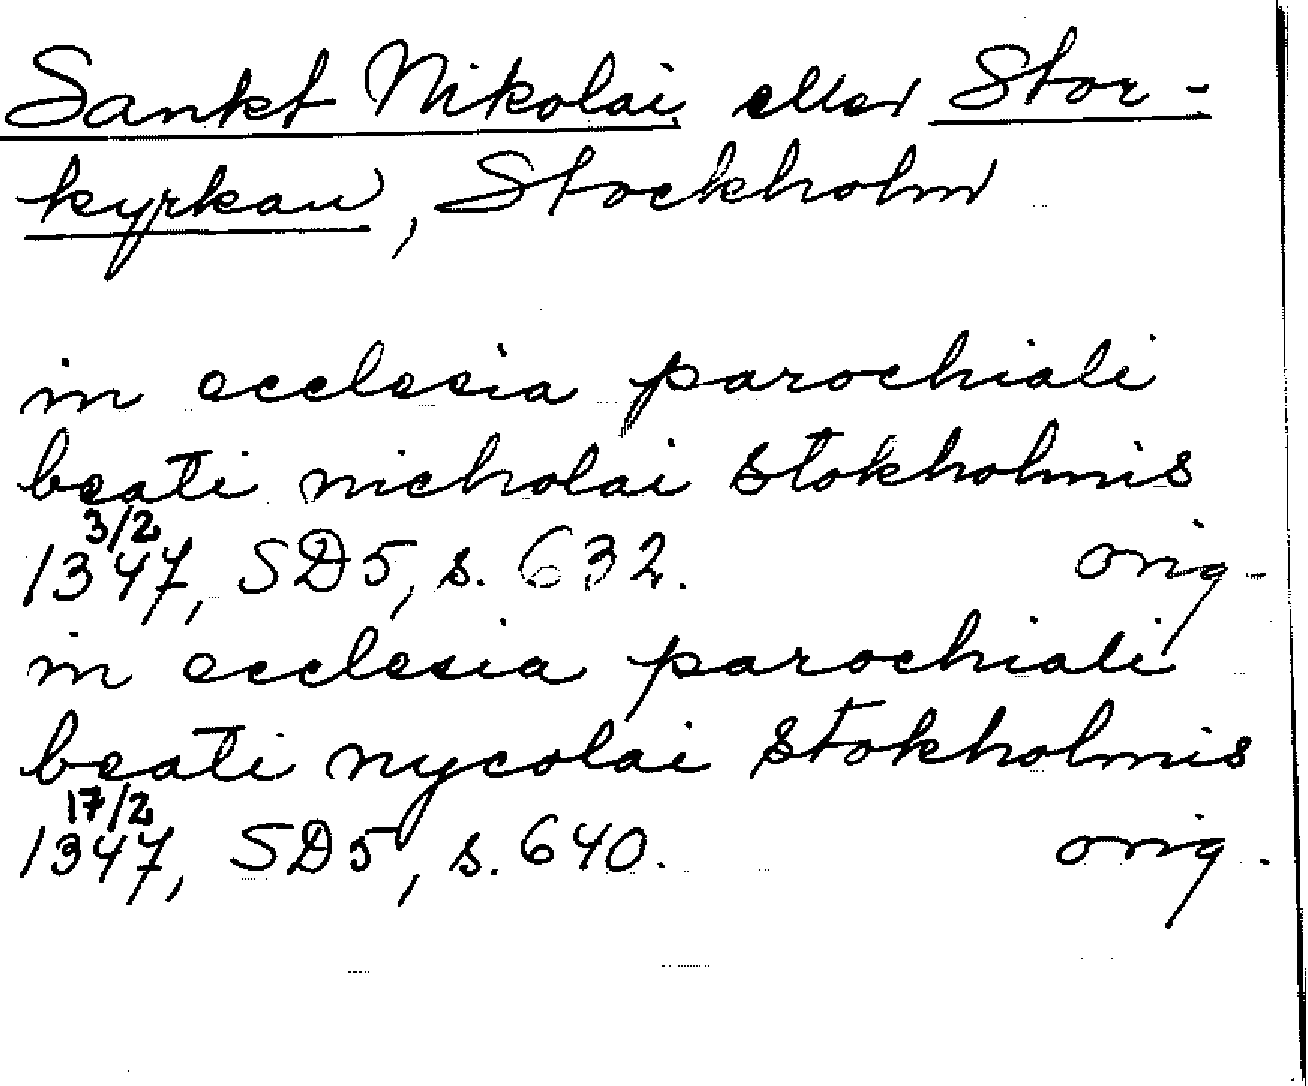 Sankt Nikolai eller Stor-
kyrkan, Stockholm
in ecclesia parochiali
beati nicholai stokholmis
3/2
1347, SD5, s. 632. orig.
in ecclesia parochiali
beati nycolai stokholmis
17/2
1347, SD5, s. 640. orig.